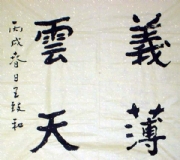 義薄
雲天
丙戌春日王鼓和